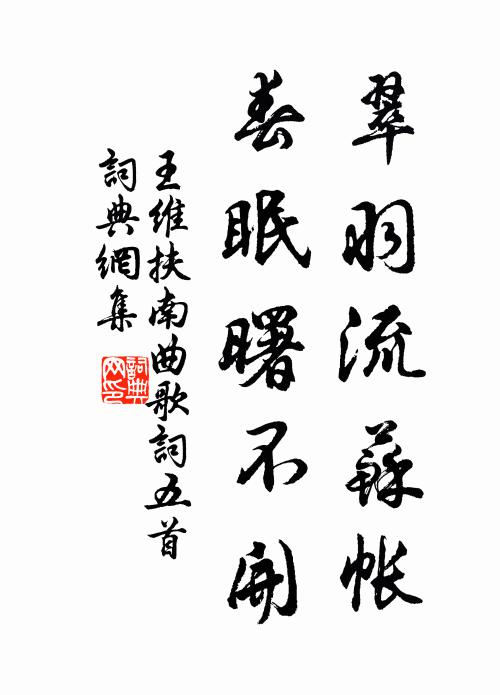 翠羽流蘇帳
春眠曙不開
王維扶南曲歌詞五首
詞典網集
詞典
网印